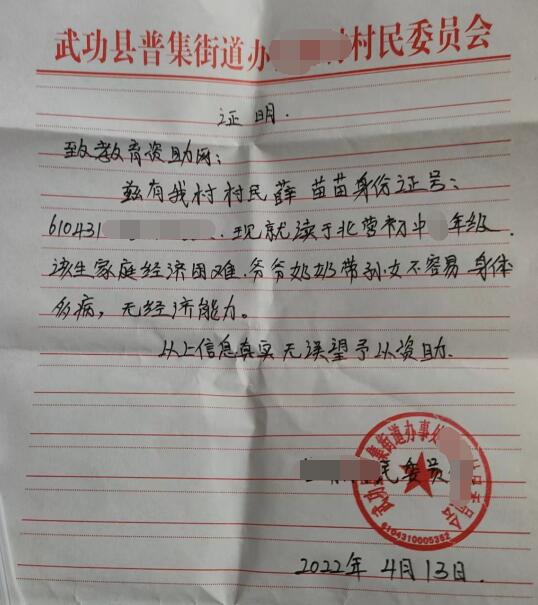 武功县普集街道办村民委员会
证明.
致教育资助网:
兹有我村村民薛苗苗身份证号:
610431 现就读于北营初中年级.
该生家庭经济困难.爷爷奶奶带孙女不容易身体
多病,无经济能力。
以上信息真实无误望予以资助.
民委员
武功县普集街道办事处
6104310005352
2022年4月13日.